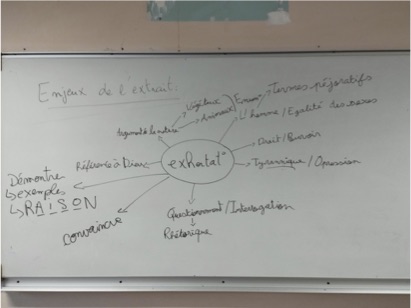 Enjeux de l'extrait :
Végétaux
Animaux
Termes péjoratifs
L'homme / Egalité des sexes
Argumenté la nature
Droit / Pouvoir
Référence à Dieu
exhortat°
Tyrannique / Opression
Démontre
↳ exemples
↳ RAISON
Convaincre
Questionnement / Interrogation
Rhétorique